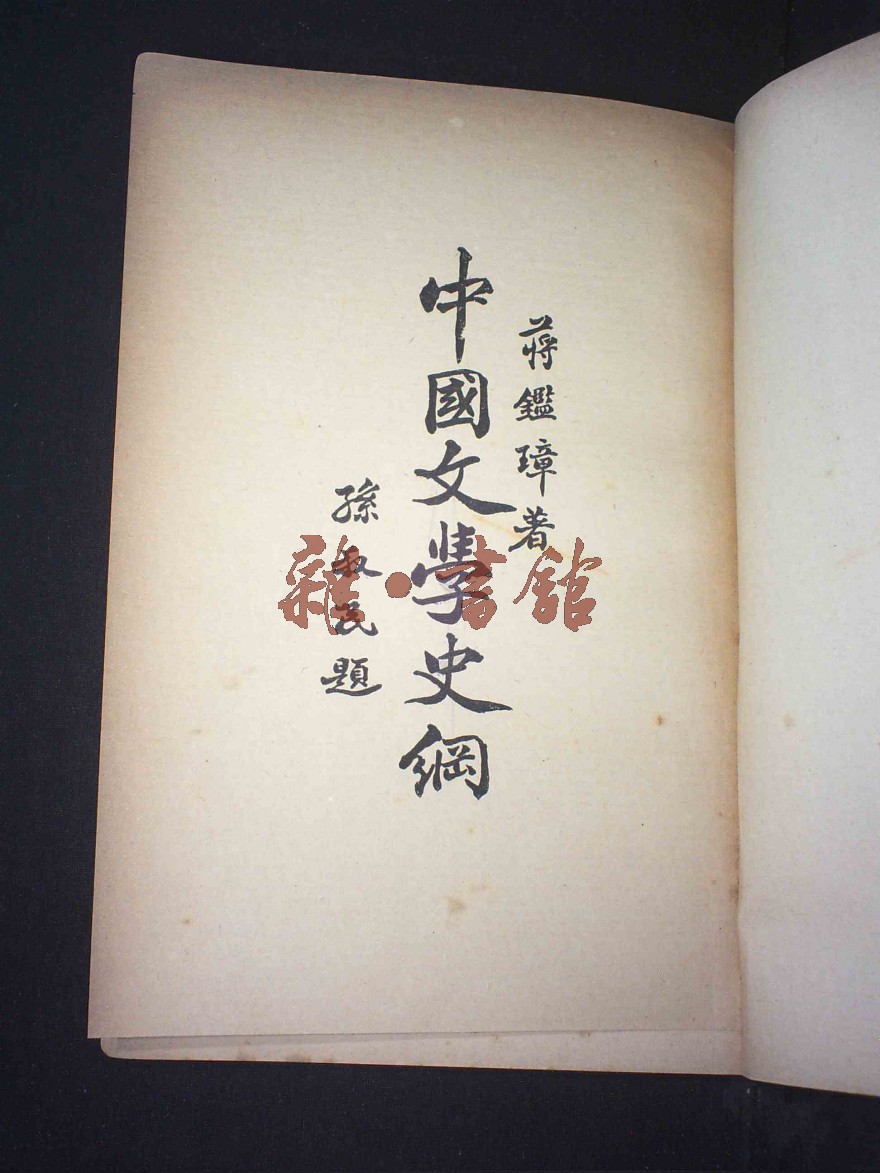 蔣鑑璋著
中國文學史綱
孫叔民題
雜·書館